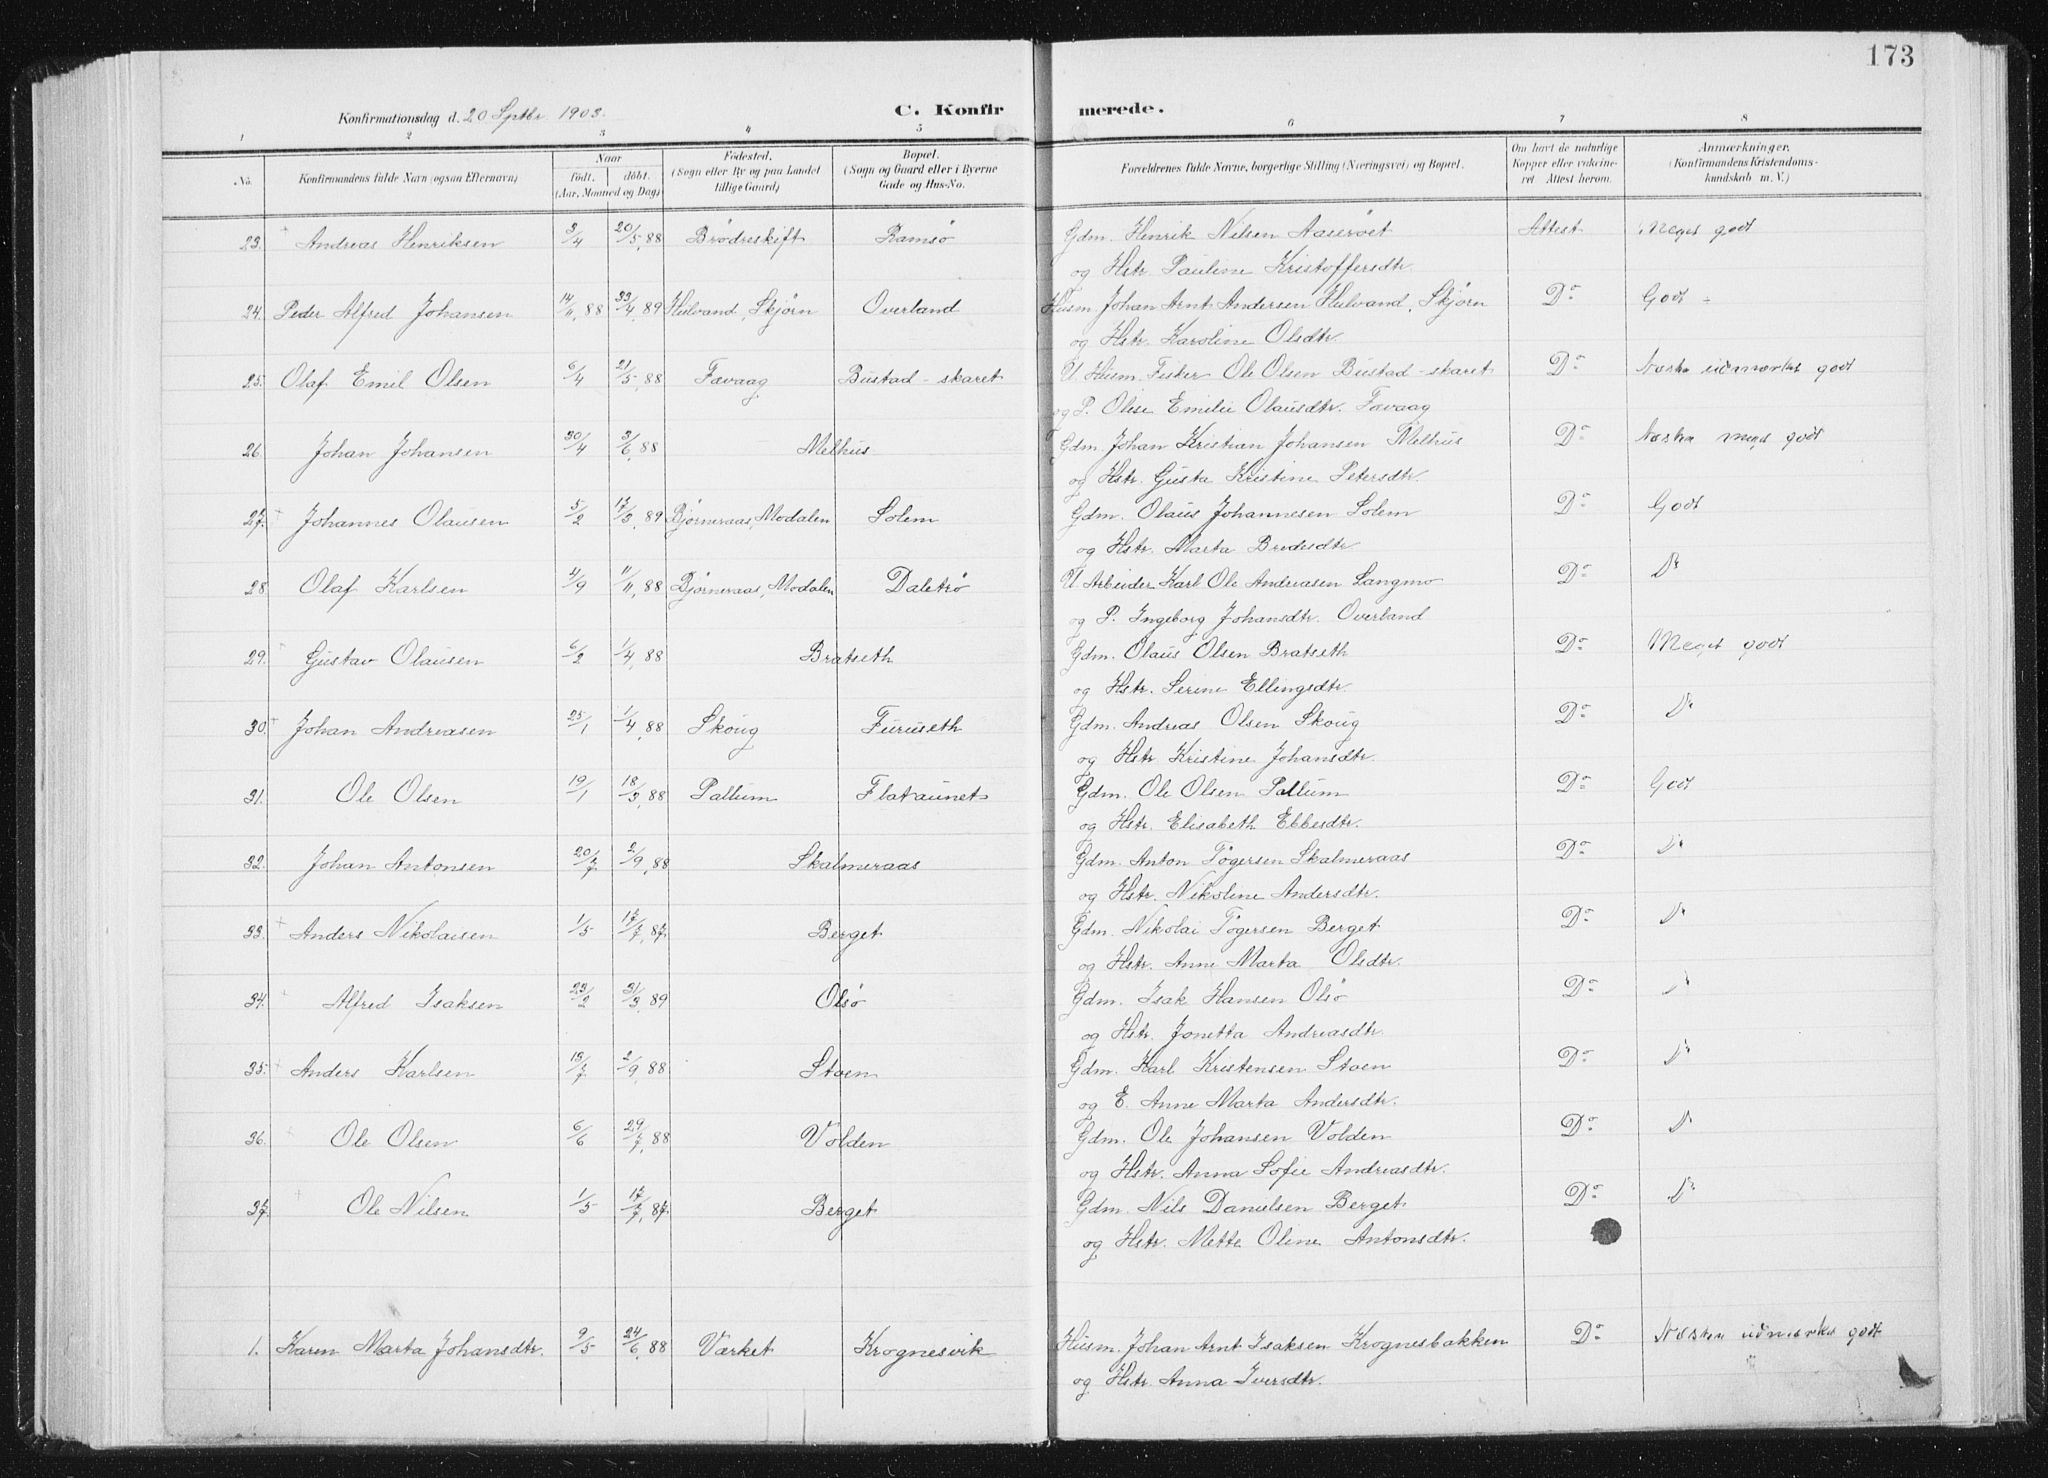 173
Konfirmationsdag d. 20 Septbr. 1903.
C. Konfirmerede.
1 2 3 4 5 6 7 8
No. Konfirmandens fulde Navn (ogsaa Efternavn) Naar født. døbt. (Aar, Maaned og Dag) Fødested. (Sogn eller By og paa Landet tillige Gaard) Bopæl. (Sogn og Gaard eller i Byerne Gade og Hus-No. Forældrenes fulde Navne, borgerlige Stilling (Næringsvei) og Bopæl. Om havt de naturlige Kopper eller vaccineret Attest herom. Anmærkninger. (Konfirmandens Kristendomskundskab m. V.)
23. Andreas Henriksen 3/4 20/5, 88 Brødreskift Ramsø Gdm. Henrik Nilsen Aaserøet Attest Meget godt
og Hstr. Pauline Kristoffersdtr.
24. Peder Alfred Johansen 14/11, 88 /4, 89 Heilvand, Skjørn Overland Husm. Johan Arnt Andersen Heilvand, Skjørn Do Godt ÷
og Hstr. Karoline Olsdtr.
25. Olaf Emil Olsen 6/4 21/5, 88 Fævaag Bustad-skaret U. Husm. Fisker Ole Olsen Bustad-skaret Do Næsten udmærket godt
og P. Oline Emilie Olausdtr. Fævaag
26. Johan Johansen 30/4 3/6, 88 Melhus Gdm. Johan Kristian Johansen Melhus Do Næsten meget godt
og Hstr. Gusta Kristine Petersdtr.
27. Johannes Olausen 5/2 17/3, 89 Bjørneraas, Modalen Solem Gdm. Olaus Johannesen Solem Do Godt
og Hstr. Marta Bredesdtr.
28. Olaf Karlsen 4/9 11/11, 88 Bjørneraas, Modalen Daletrø U Arbeider Karl Ole Andreasen Langmo Do Do
og P. Ingeborg Johansdtr. Overland
29. Gustav Olausen 6/2 1/4, 88 Bratseth Gdm. Olaus Olsen Bratseth Do Meget godt
og Hstr. Serine Ellingsdtr.
30. Johan Andreasen 25/1 1/4, 88 Skoug Furuseth Gdm. Andreas Olsen Skoug Do Do
og Hstr. Kristine Johansdtr.
31. Ole Olsen 19/1 18/3, 88 Pallum Flataunet Gdm. Ole Olsen Pallum Do Godt
og Hstr. Elisabeth Ebbesdtr.
32. Johan Antonsen 20/7 2/9, 88 Skalmeraas Gdm. Anton Tøgersen Skalmeraas Do Do
og Hstr. Nikoline Andersdtr.
33. Anders Nikolaisen 1/5 17/7, 87. Berget Gdm. Nikolai Tøgersen Berget Do Do
og Hstr. Anne Marta Olsdtr.
34. Alfred Isaksen 23/2 31/3, 89 Olsø Gdm. Isak Hansen Olsø Do Do
og Hstr. Jonetta Andreasdtr.
35. Anders Karlsen 15/7 2/9, 88 Støen Gdm. Karl Kristensen Støen Do Do
og E. Anne Marta Andersdtr.
36. Ole Olsen 6/6 29/7, 88 Volden Gdm. Ole Johansen Volden Do Do
og Hstr. Anna Sofie Andreasdtr.
37. Ole Nilsen 1/5 17/7, 87. Berget Gdm. Nils Danielsen Berget Do Do
og Hstr. Mette Oline Antonsdtr.
1. Karen Marta Johansdtr. 9/5 24/6, 88 Værket Krognesvik Husm. Johan Arnt Isaksen Krognesbakken Do Næsten udmærket godt
og Hstr. Anna Iversdtr.